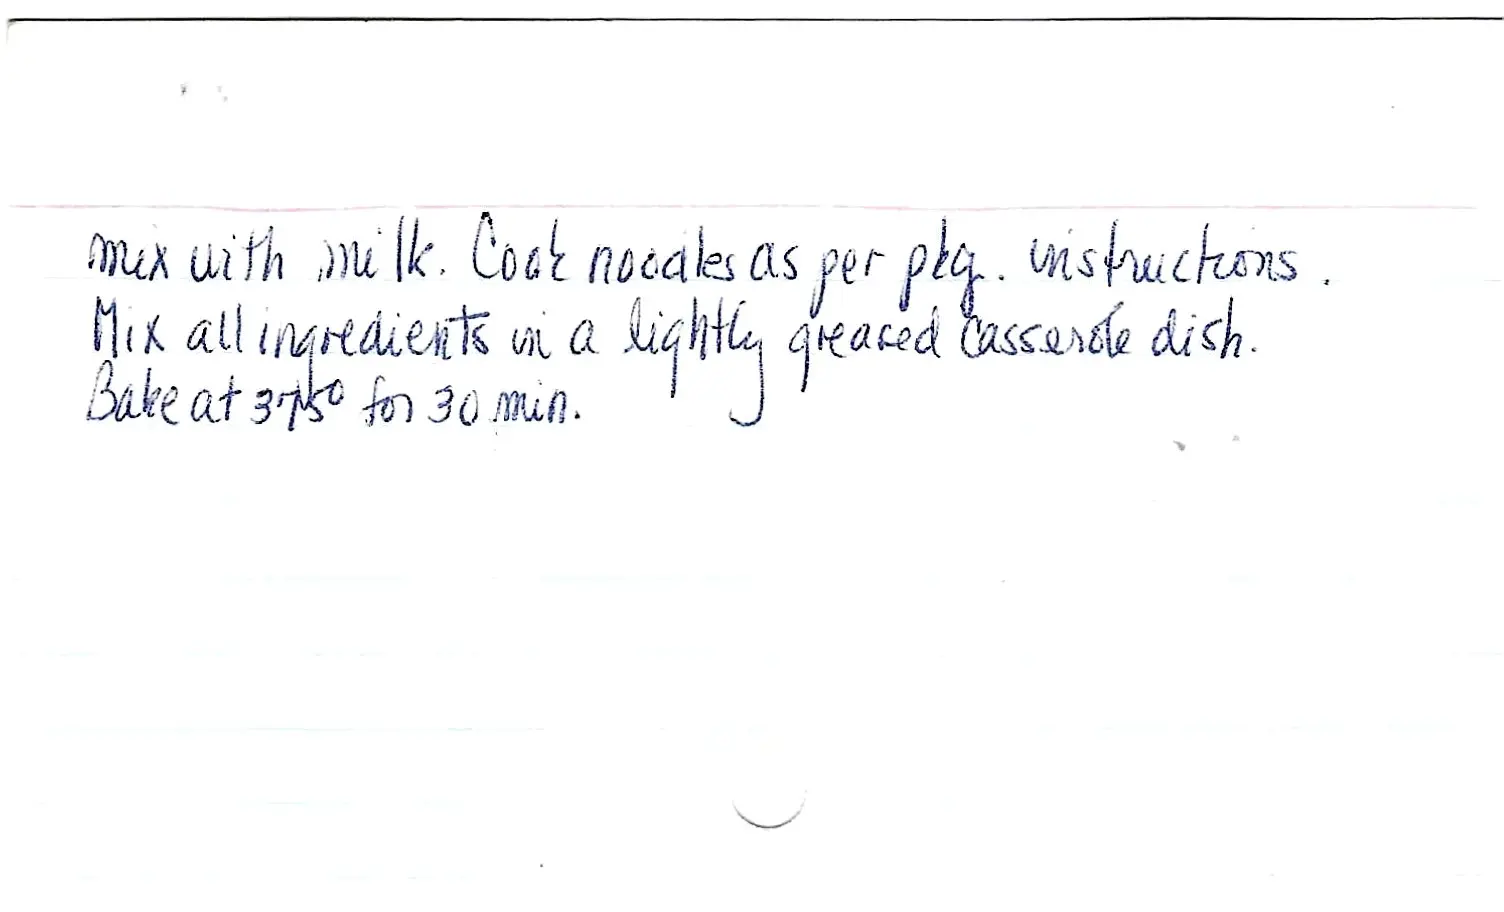 mix with milk. Cook noodles as per pkg. instructions.
Mix all ingredients in a lightly greased casserole dish.
Bake at 375° for 30 min.